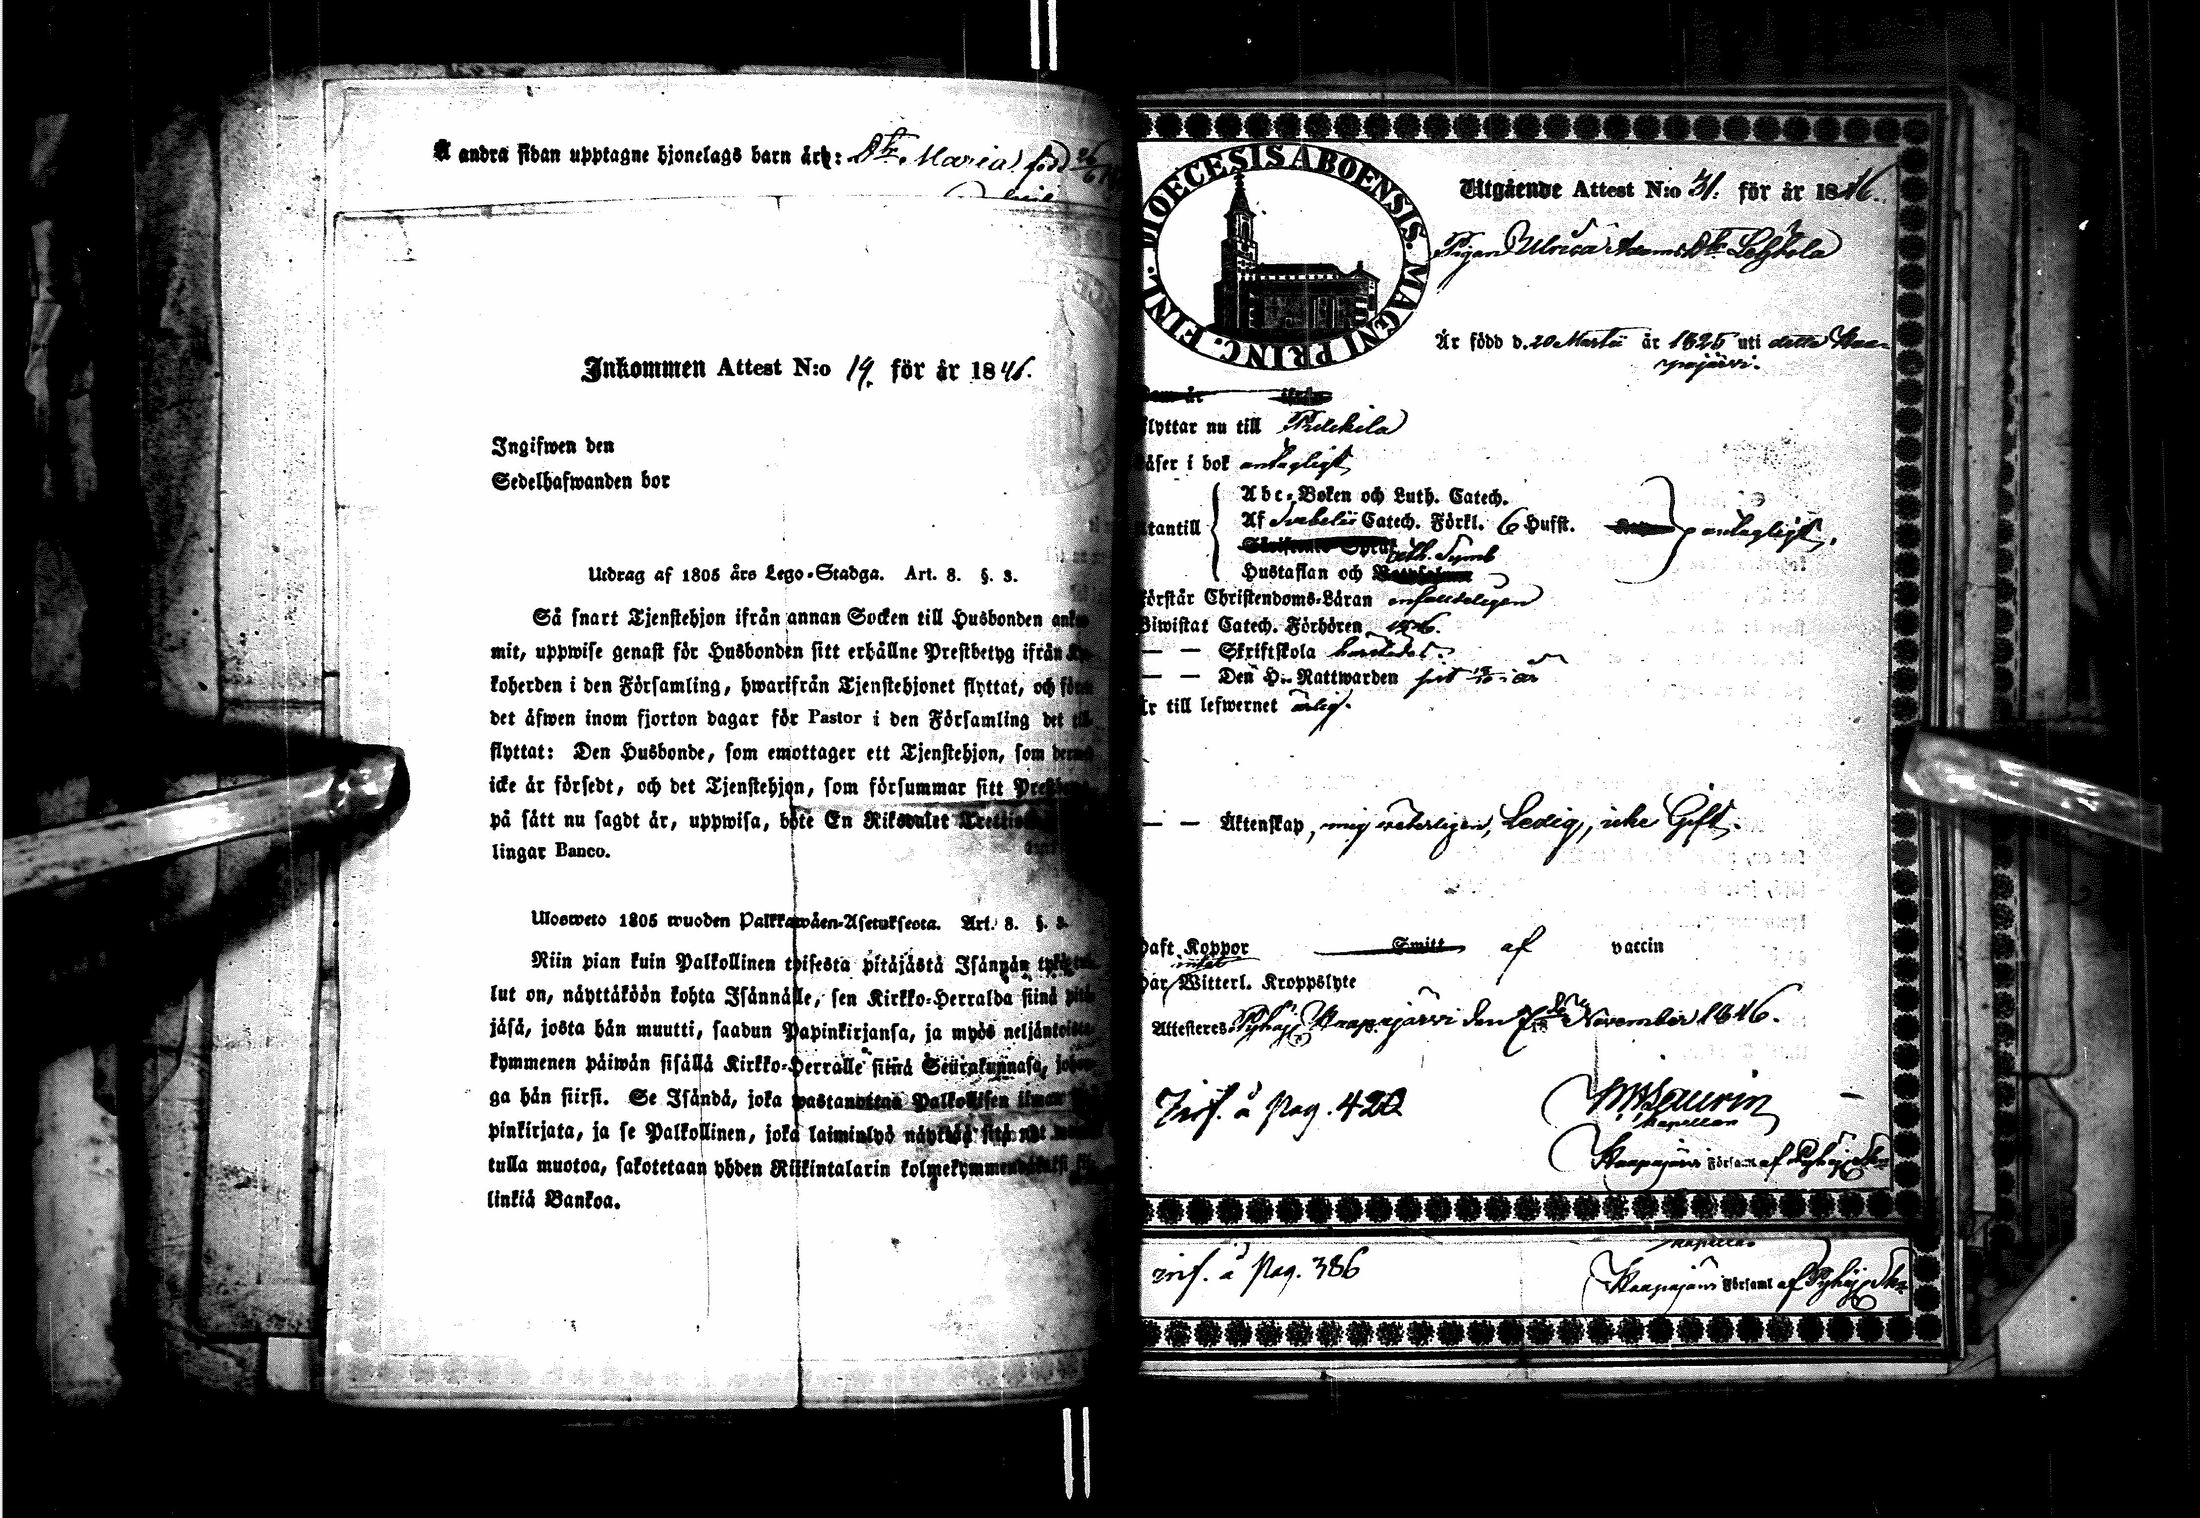 Å andra sidan upptagne hjonelags barn äro: Dtr. Maria född 26/6
Inkommen Attest N:o 19. för år 1846.
Ingifwen den
Sedelhafwanden bor
Utdrag af 1805 års Lego-Stadga. Art. 8. §. 3.
Så snart Tjenstehjon ifrån annan Socken till Husbonden
mit, uppwise genast för Husbonden sitt erhållne Prestbetyg ifrån
koherden i den Församling, hwarifrån Tjenstehjonet flyttat, och
det äfwen inom fjorton dagar för Pastor i den Församling det
flyttat: Den Husbonde, som emottager ett Tjenstehjon, som
icke är försedt, och det Tjenstehjon, som försummar sitt
på sätt nu sagdt är, uppwisa, böte En Riksdaler
lingar Banco.
Ulosweto 1805 wuoden Palkkawäen-Asetuksesta. Art. 8. §. 3.
Niin pian kuin Palkollinen toisesta pitäjästä Isännän
lut on, näyttäköön kohta Isännälle, sen Kirkko-Herralda siinä
jäsä, josta hän muutti, saadun Papinkirjansa, ja myös neljäntoista
kymmenen päiwän sisällä Kirkko-Herralle siinä Seurakunnasa,
ga hän siirsi. Se Isändä, joka wastanottaa Palkollisen ilman
pinkirjata, ja se Palkollinen, joka laiminlyö näyttää sitä
tulla muotoa, sakotetaan yhden Riikintalarin
linkiä Bankoa.
DIOECESIS ABOENSIS. MAGNI PRINC. FINL.
Utgående Attest N:o 31. för år 1846.
Pigan Ulrica Adams Dtr
Är född d. 20 Martii år 1825 uti detta Kaa-
pajärvi.
flyttar nu till
läser i bok antagligt
Abc-Boken och Luth. Catech.
utantill Af Svebelii Catech. Förkl. 6 Hufst. antagligt.
Ath. Symb
Hustaflan och
förstår Christendoms-Läran enfaldeligen
Biwistat Catech. Förhören 1846.
— — Skriftskola
— — Den H. Nattwarden
är till lefwernet ärlig.
— — Äktenskap, mig veterligen, Ledig, icke Gift.
haft Koppor af vaccin
intet
har Witterl. Kroppslyte
Attesteres November 1846.
Inf. å Pag. 420
Kapellan
Församl af
inf. å Pag. 386
Kapellan
Församl af